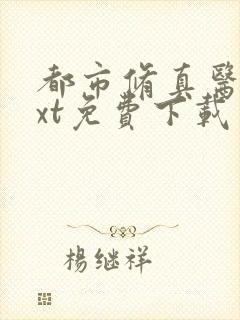 都市脩真醫
xt免費下載
楊继祥